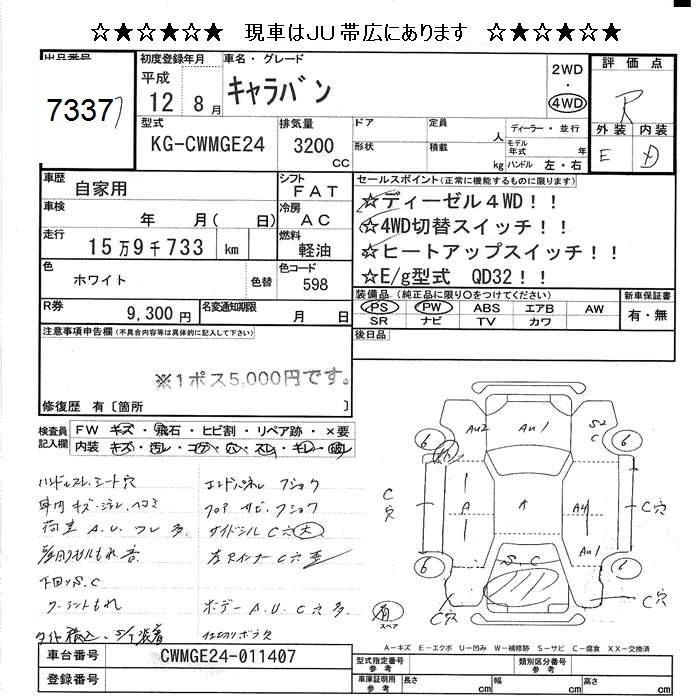 ☆★☆★☆★ 現車はJU帯広にあります ☆★☆★☆★
出品番号
7337
初度登録年月
平成
12年 8月
車名・グレード
キャラバン
2WD
・
4WD
評価点
R
外装 内装
E D
型式
KG-CWMGE24
排気量
3200
CC
ドア
定員
人
形状
積載
kg
ディーラー・並行
モデル年式
年
ハンドル 左・右
車歴
自家用
シフト
FAT
車検
年 月( 日)
冷房
AC
走行
15万9千733 km
燃料
軽油
色
ホワイト
色替
色コード
598
R券
9,300円
名変通知期限
月 日
セールスポイント(正常に機能するものに限ります)
☆ディーゼル4WD!!
☆4WD切替スイッチ!!
☆ヒートアップスイッチ!!
☆E/g型式 QD32!!
装備品(純正品に限り○をつけてください)
PS PW ABS エアB AW
SR ナビ TV カワ
新車保証書
有・無
後日品
注意事項申告欄(不具合内容等は具体的に記入して下さい)
※1ポス5,000円です。
修復歴 有〔箇所 〕
検査員記入欄
FW キズ・飛石・ヒビ割・リペア跡・×要
内装 キズ・汚レ・コゲ・穴・スレ・キレ・破レ
ハンドルスレ、シート穴
車内キズ・ヨゴレ・ヘコミ
荷室 A.U. ワレ 多
下回り S.C
エンドパネル フショク
フロア サビ・フショク
サイドシル C穴 大
左 インナー C穴
ボデー A.U.C穴 多
Au2
Au1
S2
C
6
6
6
6
A
A
A4
Au1
C
穴
C
穴
S.C
C穴
C穴
有
スペア
A-キズ E-エクボ U-凹み W-補修跡 S-サビ C-腐食 XX-交換済
車台番号
CWMGE24-011407
登録番号
型式指定番号
参考
類別区分番号
参考
車庫証明用
参考
長さ
cm
幅
cm
高さ
cm